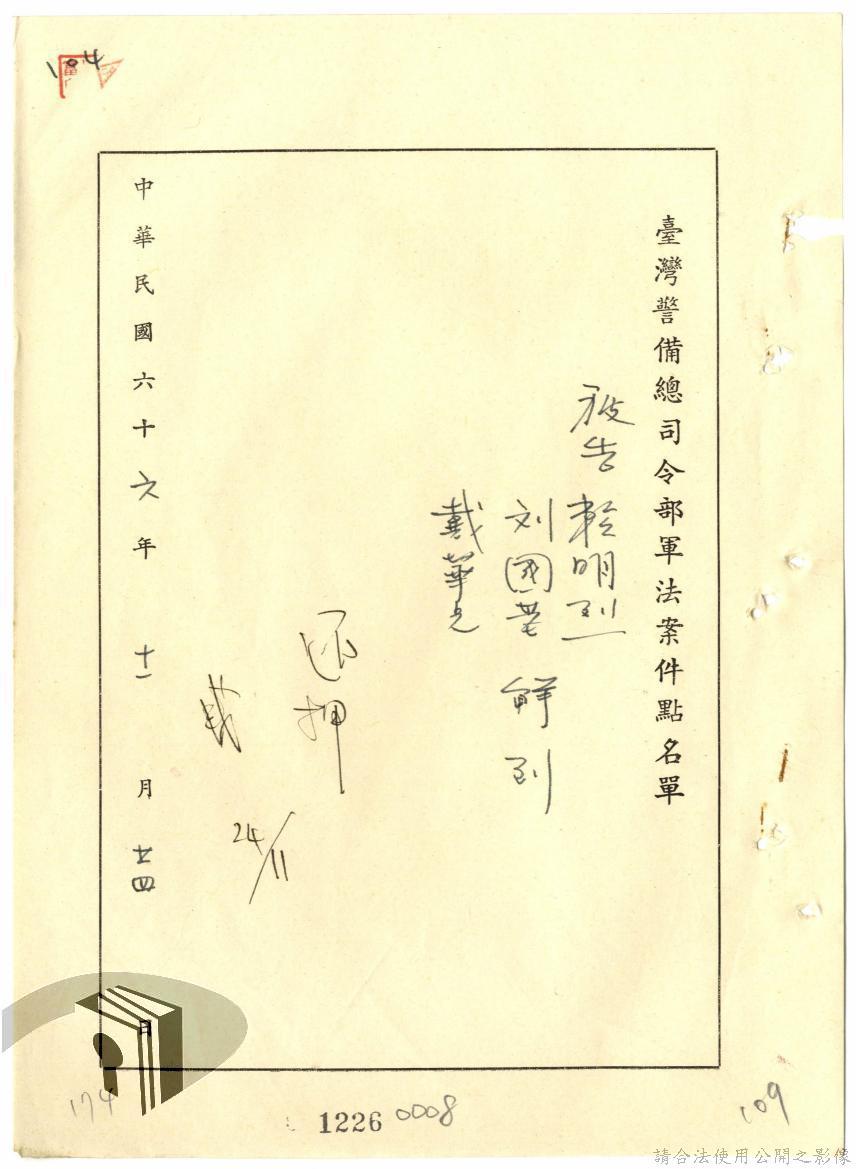 104
臺灣警備總司令部軍法案件點名單
被告 賴明烈
刘國基 解到
戴華光
还押
24/11
中華民國六十六年十一月廿四日
174
1226 0008
109
請合法使用公開之影像